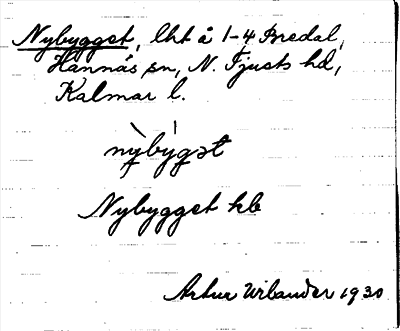 Nybygget, lht å 1-4 Bredal,
Hannäs sn, N. Tjusts hd,
Kalmar l.
nỳbýgət
Nybygget kb
Artur Wilander 1930